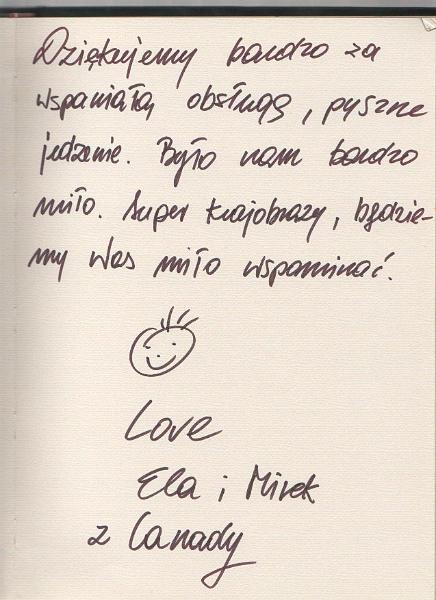 Dziękujemy bardzo za
wspaniałą obsługę, pyszne
jedzenie. Było nam bardzo
miło. Super krajobrazy, będzie-
my Was miło wspominać.
Love
Ela i Mirek
z Canady